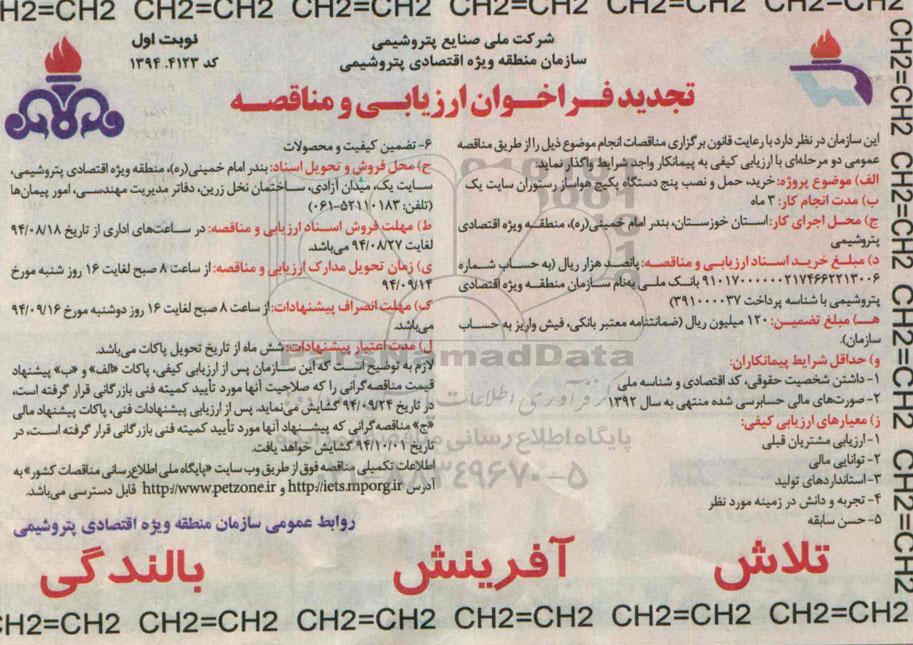 CH2=CH2 CH2=CH2 CH2=CH2 CH2=CH2 CH2=CH2 CH2=CH2
شرکت ملی صنایع پتروشیمی
سازمان منطقه ویژه اقتصادی پتروشیمی
نوبت اول
کد ۱۳۹۴.۴۱۲۳
تجدید فراخوان ارزیابی و مناقصه
این سازمان در نظر دارد با رعایت قانون برگزاری مناقصات انجام موضوع ذیل را از طریق مناقصه
عمومی دو مرحله‌ای با ارزیابی کیفی به پیمانکار واجد شرایط واگذار نماید:
الف) موضوع پروژه: خرید، حمل و نصب پنج دستگاه پکیج هواساز رستوران سایت یک
ب) مدت انجام کار: ۳ ماه
ج) محل اجرای کار: استان خوزستان، بندر امام خمینی(ره)، منطقه ویژه اقتصادی
پتروشیمی
د) مبلغ خرید اسناد ارزیابی و مناقصه: پانصد هزار ریال (به حساب شماره
۹۱۰۱۷۰۰۰۰۰۰۲۱۷۴۶۶۲۲۱۳۰۰۶ بانک ملی به‌نام سازمان منطقه ویژه اقتصادی
پتروشیمی با شناسه پرداخت ۳۹۱۰۰۰۰۳۷)
هـ) مبلغ تضمین: ۱۲۰ میلیون ریال (ضمانتنامه معتبر بانکی، فیش واریز به حساب
سازمان).
و) حداقل شرایط پیمانکاران:
۱- داشتن شخصیت حقوقی، کد اقتصادی و شناسه ملی
۲- صورت‌های مالی حسابرسی شده منتهی به سال ۱۳۹۲
ز) معیارهای ارزیابی کیفی:
۱- ارزیابی مشتریان قبلی
۲- توانایی مالی
۳- استانداردهای تولید
۴- تجربه و دانش در زمینه مورد نظر
۵- حسن سابقه
۶- تضمین کیفیت و محصولات
ح) محل فروش و تحویل اسناد: بندر امام خمینی(ره)، منطقه ویژه اقتصادی پتروشیمی،
سایت یک، میدان آزادی، ساختمان نخل زرین، دفاتر مدیریت مهندسی، امور پیمان‌ها
(تلفن: ۵۲۱۱۰۱۸۳-۰۶۱)
ط) مهلت فروش اسناد ارزیابی و مناقصه: در ساعت‌های اداری از تاریخ ۹۴/۰۸/۱۸
لغایت ۹۴/۰۸/۲۷ می‌باشد.
ی) زمان تحویل مدارک ارزیابی و مناقصه: از ساعت ۸ صبح لغایت ۱۶ روز شنبه مورخ
۹۴/۰۹/۱۴
ک) مهلت انصراف پیشنهادات: از ساعت ۸ صبح لغایت ۱۶ روز دوشنبه مورخ ۹۴/۰۹/۱۶
می‌باشد.
ل) مدت اعتبار پیشنهادات: شش ماه از تاریخ تحویل پاکات می‌باشد.
لازم به توضیح است که این سازمان پس از ارزیابی کیفی، پاکات «الف» و «ب» پیشنهاد
قیمت مناقصه‌گرانی را که صلاحیت آنها مورد تأیید کمیته فنی بازرگانی قرار گرفته است،
در تاریخ ۹۴/۰۹/۲۴ گشایش می‌نماید. پس از ارزیابی پیشنهادات فنی، پاکات پیشنهاد مالی
«ج» مناقصه‌گرانی که پیشنهاد آنها مورد تأیید کمیته فنی بازرگانی قرار گرفته است، در
تاریخ ۹۴/۱۰/۰۱ گشایش خواهد یافت.
اطلاعات تکمیلی مناقصه فوق از طریق وب سایت «پایگاه ملی اطلاع‌رسانی مناقصات کشور» به
آدرس http://iets.mporg.ir و http://www.petzone.ir قابل دسترسی می‌باشد.
روابط عمومی سازمان منطقه ویژه اقتصادی پتروشیمی
تلاش آفرینش بالندگی
CH2=CH2 CH2=CH2 CH2=CH2 CH2=CH2
CH2=CH2 CH2=CH2 CH2=CH2 CH2=CH2 CH2=CH2 CH2=CH2
ParsNamadData
پایگاه اطلاع رسانی